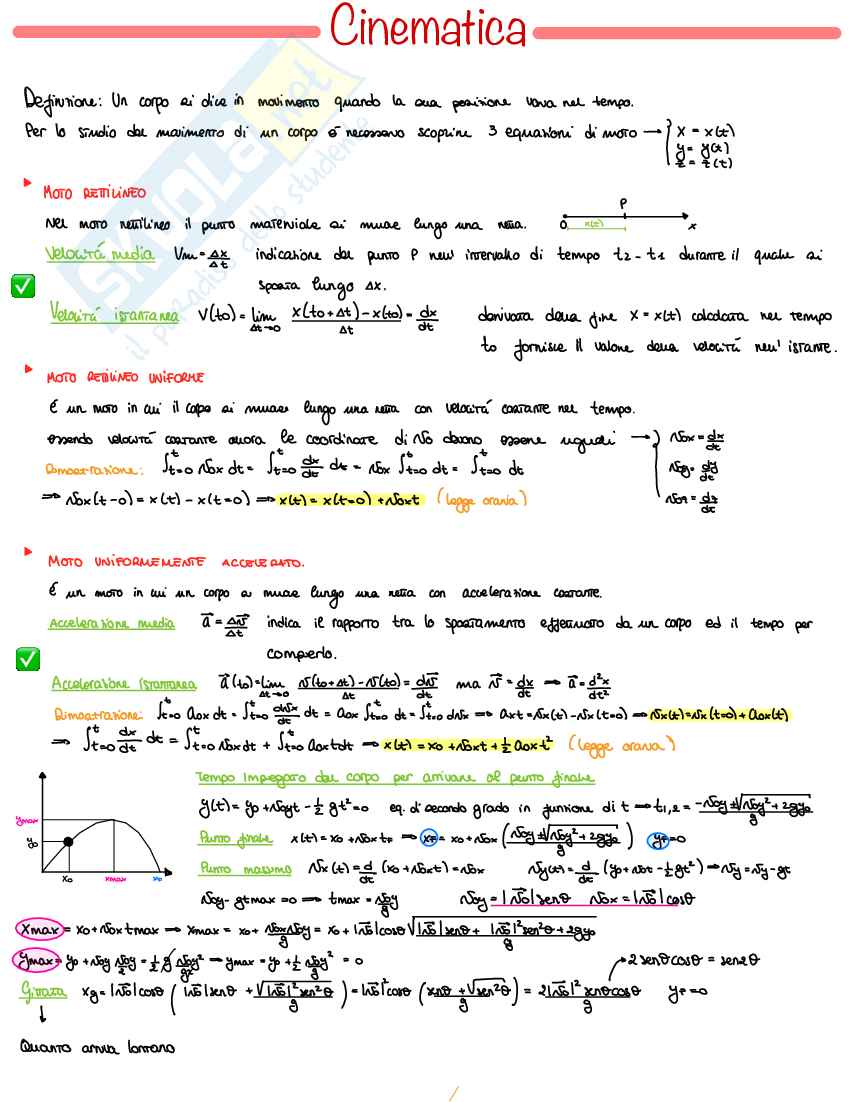 Cinematica
Definizione: Un corpo si dice in movimento quando la sua posizione varia nel tempo.
Per lo studio del movimento di un corpo è necessario scoprire 3 equazioni di moto → { x = x(t)
y = y(t)
z = z(t)
MOTO RETTILINEO
Nel moto rettilineo il punto materiale si muove lungo una retta.
P
O x(t) x
Velocità media Vm = Δx/Δt indicazione del punto P nell'intervallo di tempo t2 - t1 durante il quale si
sposta lungo Δx.
Velocità istantanea V(t0) = lim Δt→0 x(t0+Δt) - x(t0)/Δt = dx/dt derivata della fine x = x(t) calcolata nel tempo
t0 fornisce il valore della velocità nell'istante.
MOTO RETTILINEO UNIFORME
È un moto in cui il corpo si muove lungo una retta con velocità costante nel tempo.
essendo velocità costante allora le coordinate di v0 devono essere uguali → { v0x = dx/dt
v0y = dy/dt
v0z = dz/dt
Dimostrazione: ∫t=0^t v0x dt = ∫t=0^t dx/dt dt = v0x ∫t=0^t dt = ∫t=0^t dt
⇒ v0x(t-0) = x(t) - x(t=0) ⇒ x(t) = x(t=0) + v0xt (legge oraria)
MOTO UNIFORMEMENTE ACCELERATO.
È un moto in cui un corpo si muove lungo una retta con accelerazione costante.
Accelerazione media a = Δv/Δt indica il rapporto tra lo spostamento effettuato da un corpo ed il tempo per
compierlo.
Accelerazione istantanea a(t0) = lim Δt→0 v(t0+Δt) - v(t0)/Δt = dv/dt ma v = dx/dt ⇒ a = d²x/dt²
Dimostrazione: ∫t=0^t a0x dt = ∫t=0^t dvx/dt dt = a0x ∫t=0^t dt = ∫t=0^t dvx ⇒ axt = vx(t) - vx(t=0) ⇒ vx(t) = vx(t=0) + a0x(t)
⇒ ∫t=0^t dx/dt dt = ∫t=0^t v0x dt + ∫t=0^t a0xt dt ⇒ x(t) = x0 + v0xt + ½ a0xt² (legge oraria)
Tempo impiegato dal corpo per arrivare al punto finale
ymax
y0
x0 xmax x0
y(t) = y0 + v0yt - ½ gt² = 0 eq. di secondo grado in funzione di t ⇒ t1,2 = -v0y ± √v0y² + 2gy0/g
Punto finale x(t) = x0 + v0x tF ⇒ xF = x0 + v0x (v0y ± √v0y² + 2gy0/g) yF = 0
Punto massimo vx(t) = d/dt (x0 + v0xt) = v0x vy(t) = d/dt (y0 + v0t - ½ gt²) ⇒ vy = vy - gt
v0y - gtmax = 0 ⇒ tmax = v0y/g v0y = |v0| senθ v0x = |v0| cosθ
xmax = x0 + v0x tmax ⇒ xmax = x0 + v0x v0y/g = x0 + |v0| cosθ √|v0| senθ + |v0|² sen²θ + 2gy0/g
ymax = y0 + v0y v0y/2 = ½ g v0y²/g² ⇒ ymax = y0 + ½ v0y²/g = 0
2 senθcosθ = sen2θ
Gittata xg = |v0| cosθ (|v0| senθ + √|v0|² sen²θ/g) = |v0|² cosθ (senθ + √sen²θ/g) = 2|v0|² senθcosθ/g yF = 0
Quanto arriva lontano
SKUOLA.net
il paradiso dello studente